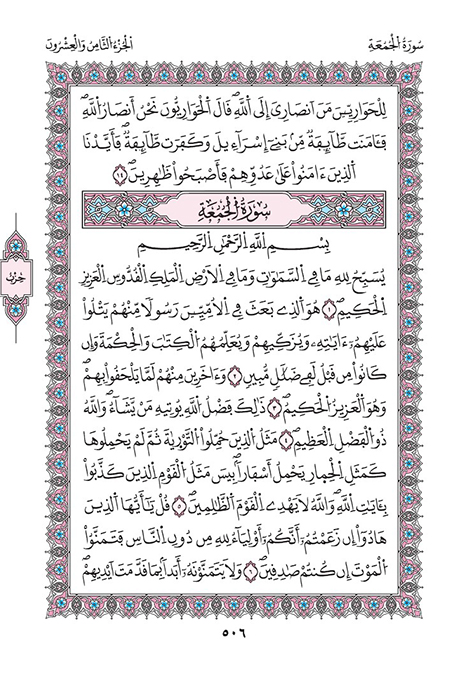 سُورَةُ الْجُمُعَةِ
الْجُزْءُ الثَّامِنُ وَالْعِشْرُونَ
لِلْحَوَارِيِّـۧنَ مَنَ اَنصَارِيَ إِلَى اَللَّهِۖ قَالَ اَلْحَوَارِيُّونَ نَحْنُ أَنصَارُ اُللَّهِۖ
فَـَٔامَنَت طَّآئِفَةٞ مِّنۢ بَنِےٓ إِسْرَآءِيلَ وَكَفَرَت طَّآئِفَةٞۖ فَأَيَّدْنَا
اَلذِينَ ءَامَنُواْ عَلَىٰ عَدُوِّهِمْ فَأَصْبَحُواْ ظَٰهِرِينَۖ ١٤
سُورَةُ الْجُمُعَةِ
بِسْمِ اِللَّهِ اِلرَّحْمَٰنِ اِلرَّحِيمِ
يُسَبِّحُ لِلهِ مَا فِے اِلسَّمَٰوَٰتِ وَمَا فِے اِلْأَرْضِ اِلْمَلِكِ اِلْقُدُّوسِ اِلْعَزِيزِ
اِلْحَكِيمِۖ ١ هُوَ اَلذِے بَعَثَ فِے اِلْأُمِّيِّـۧنَ رَسُولاٗ مِّنْهُمْ يَتْلُواْ
عَلَيْهِمُۥٓ ءَايَٰتِهِۦ وَيُزَكِّيهِمْ وَيُعَلِّمُهُمُ اُلْكِتَٰبَ وَالْحِكْمَةَ وَإِن
كَانُواْ مِن قَبْلُ لَفِے ضَلَٰلٖ مُّبِينٖۖ ٢ وَءَاخَرِينَ مِنْهُمْ لَمَّا يَلْحَقُواْ بِهِمْۖ
وَهُوَ اَلْعَزِيزُ اُلْحَكِيمُۖ ٣ ذَٰلِكَ فَضْلُ اُللَّهِ يُوتِيهِ مَنْ يَّشَآءُۖ وَاللَّهُ
ذُو اُلْفَضْلِ اِلْعَظِيمِۖ ٤ مَثَلُ اُلذِينَ حُمِّلُواْ اُلتَّوْرَىٰةَ ثُمَّ لَمْ يَحْمِلُوهَا
كَمَثَلِ اِلْحِمارِ يَحْمِلُ أَسْفَاراَۢۖ بِيسَ مَثَلُ اُلْقَوْمِ اِلذِينَ كَذَّبُواْ
بِـَٔايَٰتِ اِللَّهِۖ وَاللَّهُ لَا يَهْدِے اِلْقَوْمَ اَلظَّٰلِمِينَۖ ٥ قُلْ يَٰٓأَيُّهَا اَلذِينَ
هَادُوٓاْ إِن زَعَمْتُمُۥٓ أَنَّكُمُۥٓ أَوْلِيَآءُ لِلهِ مِن دُونِ اِلنَّاسِ فَتَمَنَّوُاْ
اُلْمَوْتَ إِن كُنتُمْ صَٰدِقِينَۖ ٦ وَلَا يَتَمَنَّوْنَهُۥٓ أَبَداَۢ بِمَا قَدَّمَتَ اَيْدِيهِمْۖ
حزب
٥٠٦